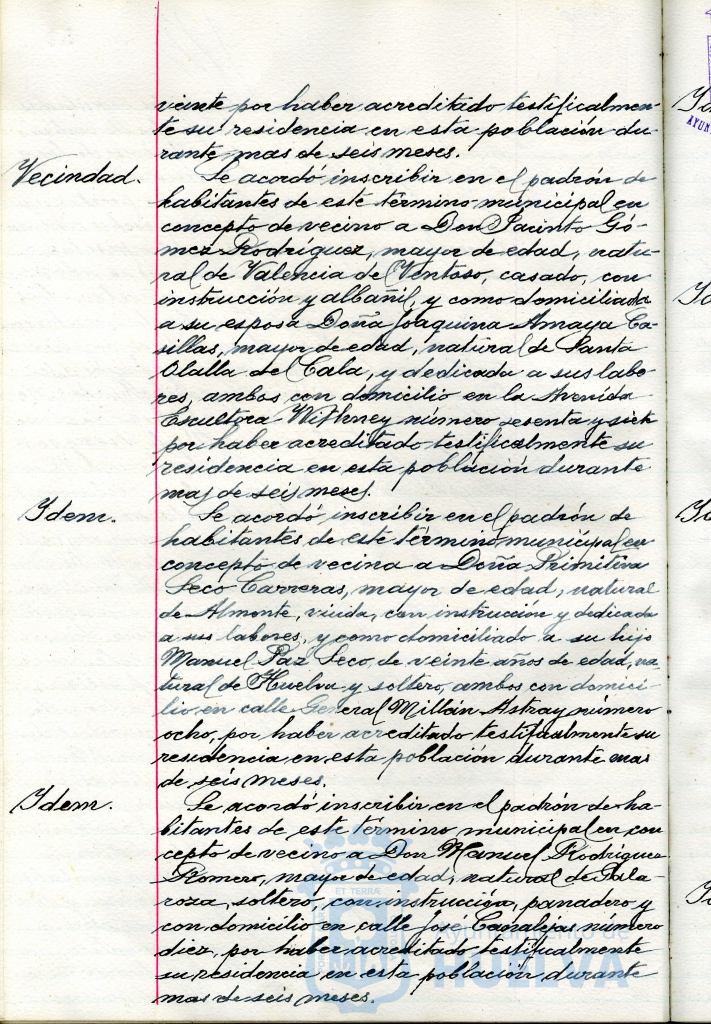 veinte por haber acreditado testificalmen-
te su residencia en esta población du-
rante mas de seis meses.
Vecindad.
Se acordó inscribir en el padrón de
habitantes de este término municipal en
concepto de vecino a Don Jacinto Gó-
mez Rodríguez, mayor de edad, natu-
ral de Valencia del Ventoso, casado, con
instrucción y albañil, y como domiciliada
a su esposa Doña Joaquina Amaya Ca-
sillas, mayor de edad, natural de Santa
Olalla del Cala, y dedicada a sus labo-
res, ambos con domicilio en la Avenida
Escultora Withney número sesenta y siete
por haber acreditado testificalmente su
residencia en esta población durante
mas de seis meses.
Idem.
Se acordó inscribir en el padrón de
habitantes de este término municipal en
concepto de vecina a Doña Primitiva
Seco Carreras, mayor de edad, natural
de Almonte, viuda, con instrucción y dedicada
a sus labores, y como domiciliado a su hijo
Manuel Paz Seco, de veinte años de edad, na-
tural de Huelva y soltero, ambos con domici-
lio en calle General Millán Astray número
ocho, por haber acreditado testificalmente su
residencia en esta población durante mas
de seis meses.
Idem.
Se acordó inscribir en el padrón de ha-
bitantes de este término municipal en con
cepto de vecino a Don Manuel Rodríguez
Romero, mayor de edad, natural de Gala-
roza, soltero, con instrucción, panadero y
con domicilio en calle José Canalejas número
diez, por haber acreditado testificalmente
su residencia en esta población durante
mas de seis meses.
ET TERRÆ
Ayuntamiento de
HUELVA